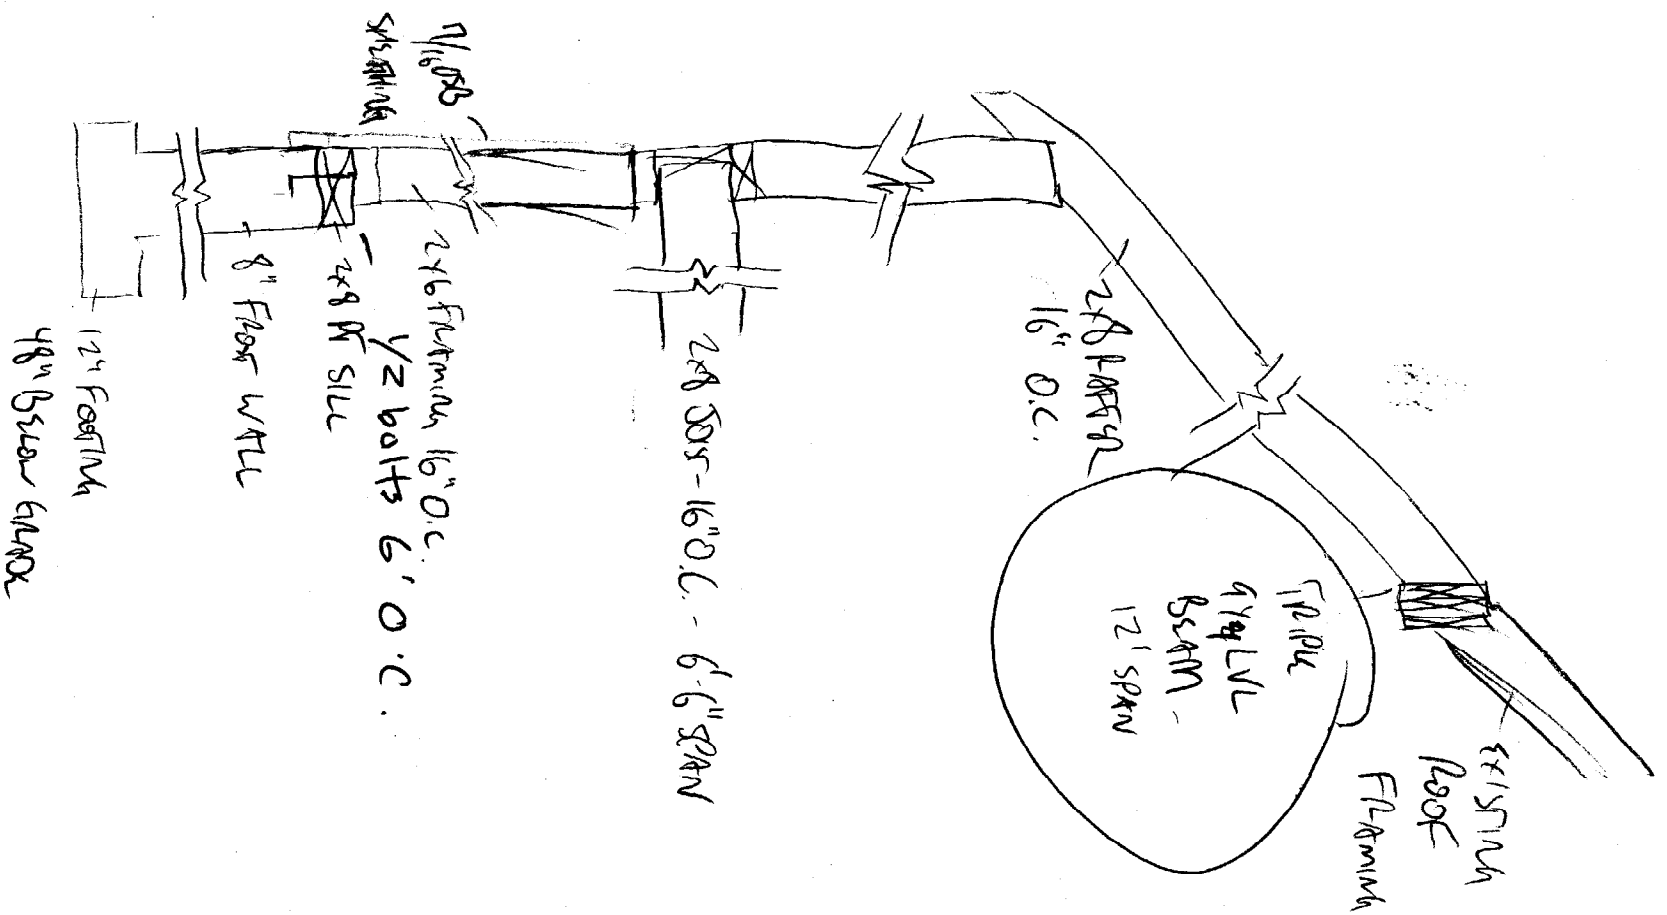 EXISTING
ROOF
FRAMING
TRIPLE
9 1/4 LVL
BEAM -
12' SPAN
2x8 RAFTER
16" O.C.
2x8 JOIST - 16" O.C. - 6'-6" SPAN
7/16 OSB
SHEATHING
2x6 FRAMING 16" O.C.
1/2 bolts 6' O.C.
2x8 PT SILL
8" FROST WALL
12" FOOTING
48" BELOW GRADE